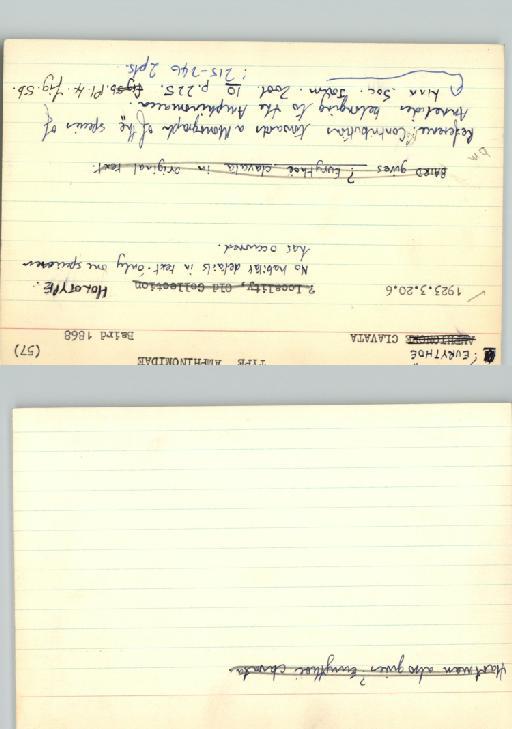 TYPE AMPHINOMIDAE (57)
? EURYTHOE
AMPHINOME CLAVATA Baird 1868
1923.3.20.6 ? Locality, Old Collection HOLOTYPE.
No habitat details in text - only one specimen
has occurred.
BAIRD gives ? Eurythoë clavata in original text.
Reference: Contributions towards a Monograph of the species of
Annelides belonging to the Amphinomacea.
Linn Soc. Journ. Zool 10 p. 225. Pl. 4 fig. 5b.
: 215-246 2 pts.
Hartman also gives ? Eurythoë clavata